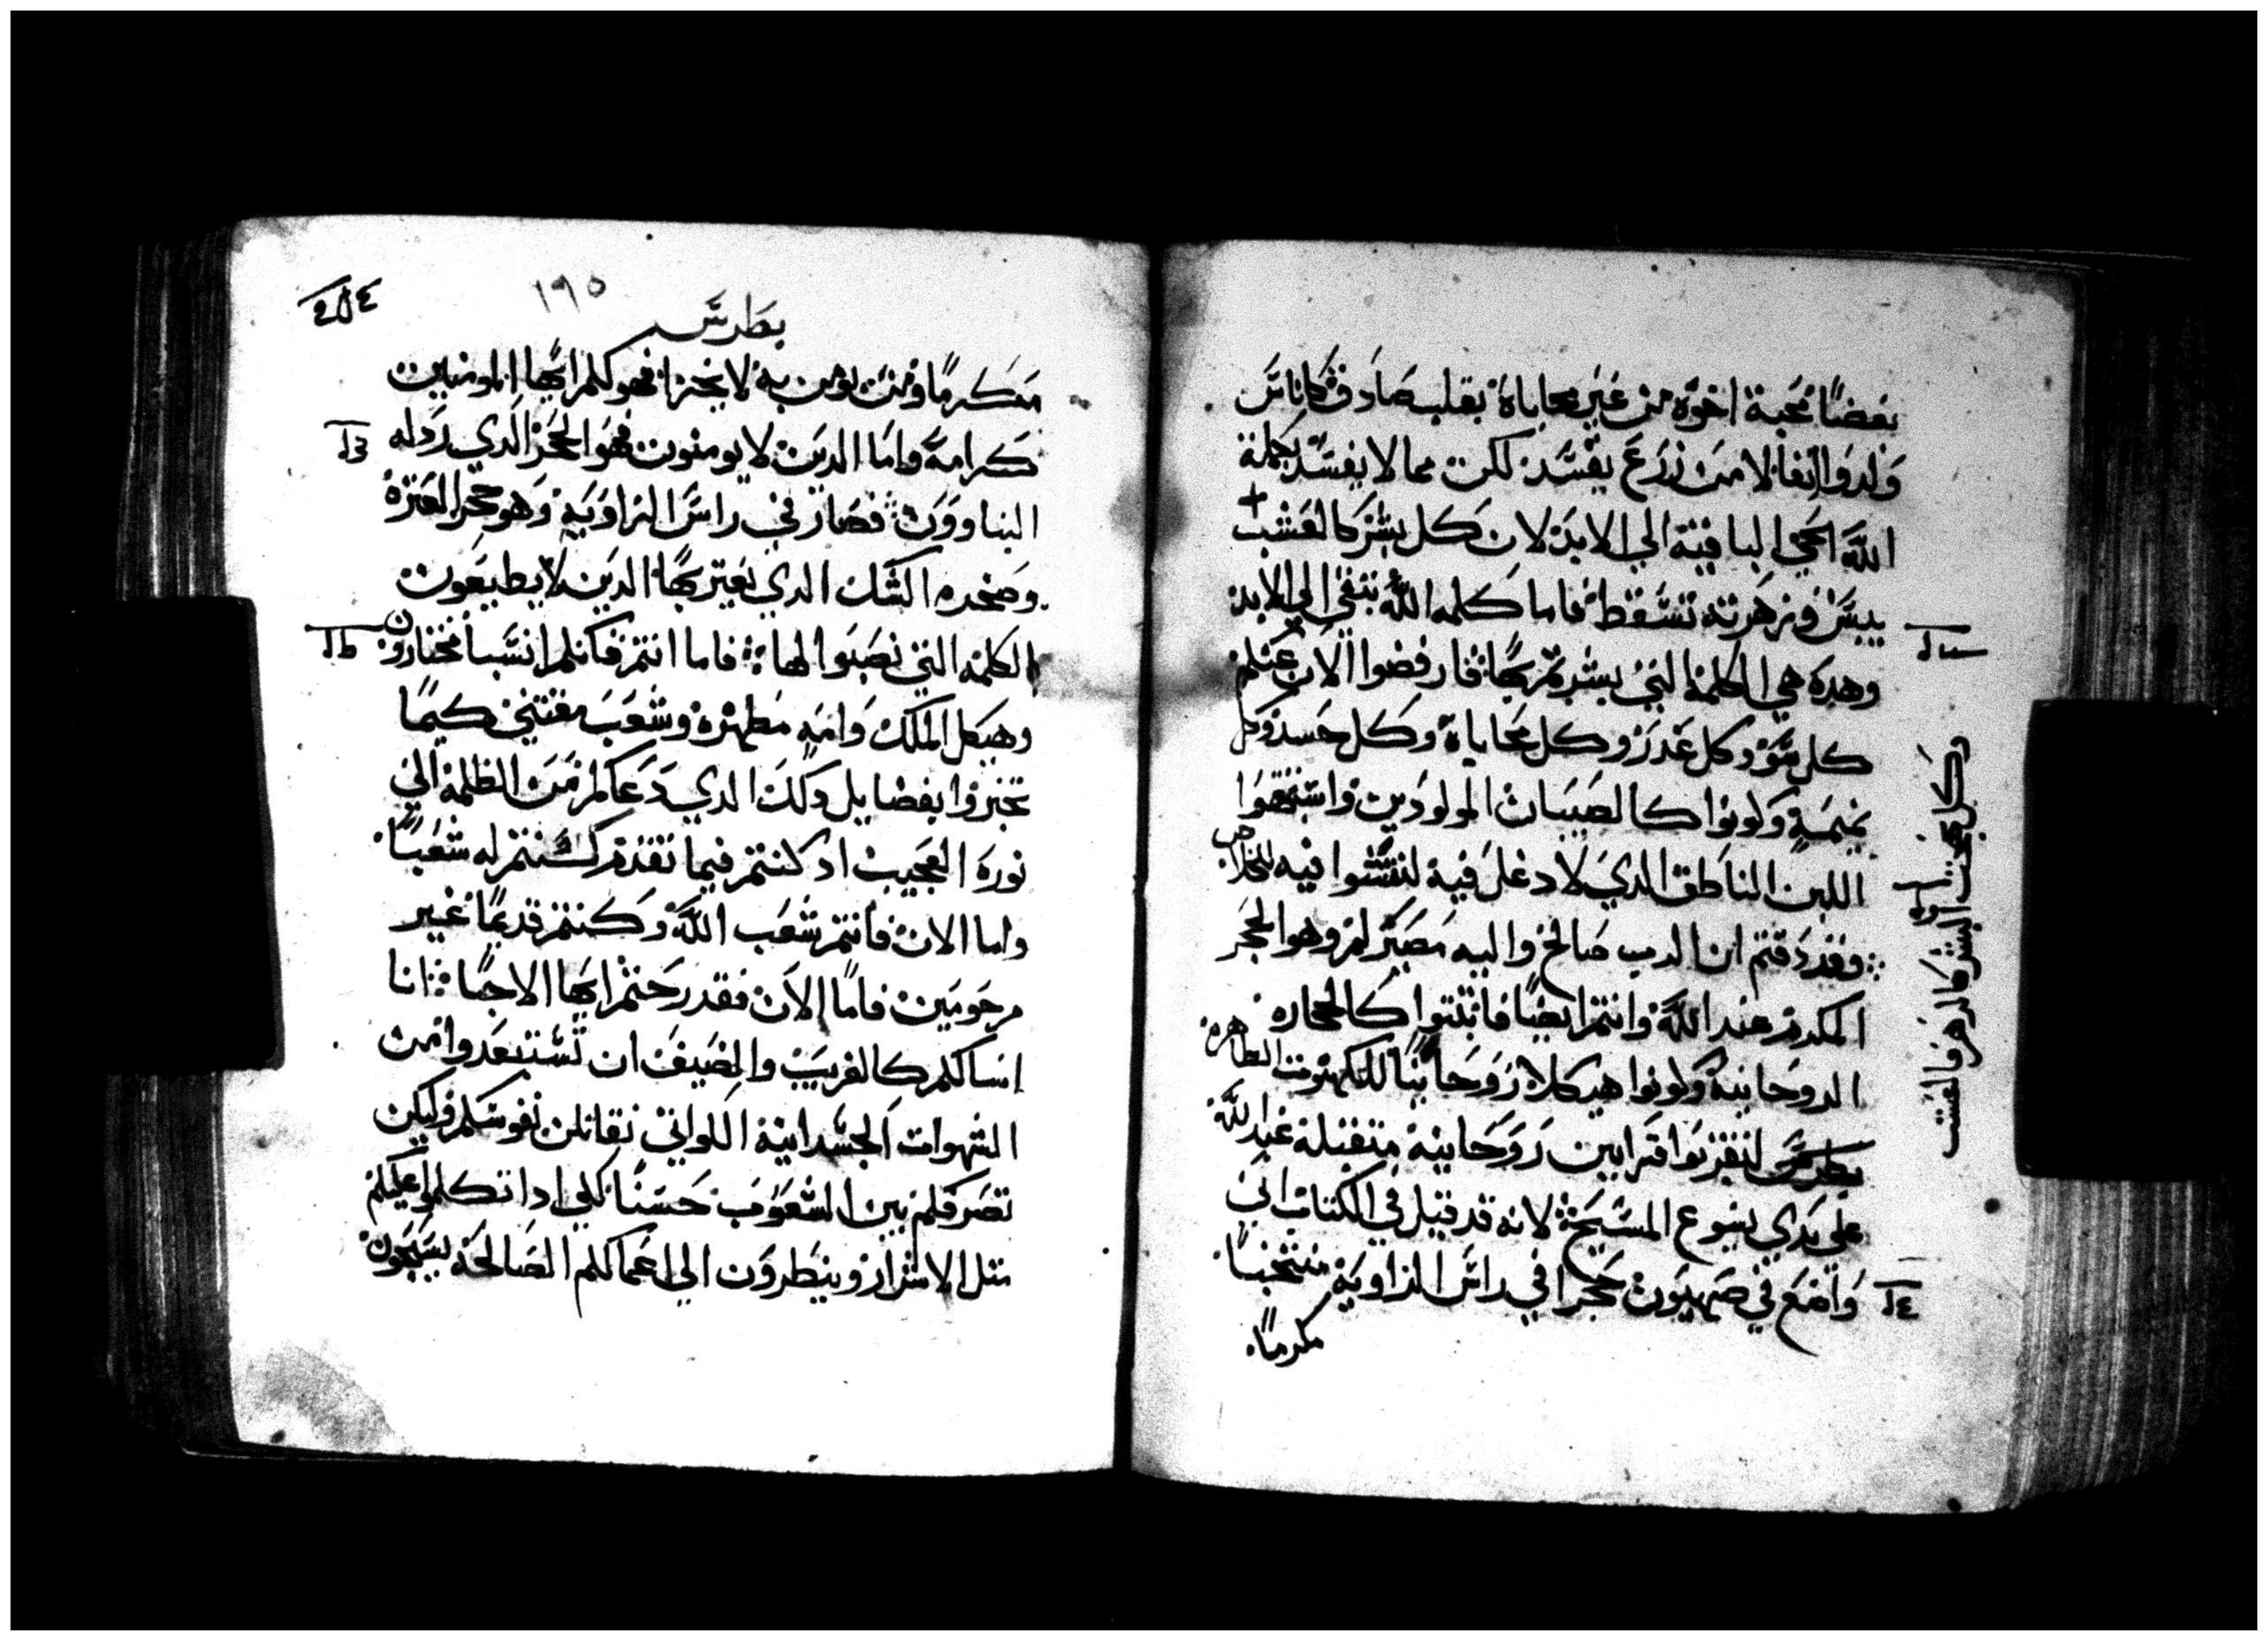 بعضًا محبة اخوه من غير محاباة بقلب صادق كاناس
ولدوا انفا لا من زرع يفسد لكن مما لا يفسد بكلمة
الله الحي الباقية الي الابد لان كل بشر كالعشب
يبس وزهرته تسقط فاما كلمه الله تبقي الي الابد
وهده هي الكلمة التي بشرتم بها فارفضوا الان عنكم
كل سو وكل غدر وكل محاباة وكل حسد وكل
نميمة وكونوا كالصبيان المولودين واشتهوا
اللبن الناطق الدي لا دغل فيه لتنشوا فيه للخلاص
وقد دقتم ان الرب صالح واليه مصيركم وهو الحجر
المكرم عند الله وانتم ايضًا فابتنوا كالحجاره
الروحانية وكونوا هيكلا روحانيًا للكهنوت الطاهره
بطرس لتقربوا قرابين روحانية متقبلة عند الله
علي يدي يسوع المسيح لانه قد قيل في الكتاب اني
واضع في صهيون حجرا في راس الزاويه منتخبًا
مكرمًا
وكل مجد البشر كالزهر في العشب
١٩٥
بطرس
مكرمًا ومن يومن به لا يخزا فهو لكم ايها المومنين
كرامة واما الدين لا يومنون فهو الحجر الدي ردله
البناوون فصار في راس الزاويه وهو حجر العتره
وصخره الشك الدي يعتر بها الدين لا يطيعون
الكلمه التي نصبوا لها فاما انتم فانكم انسبا مختارون
وهيكل الملك وامه مطهره وشعب مقتني كيما
تخبروا بفضايل دلك الدي دعاكم من الظلمة الي
نوره العجيب اد كنتم فيما تقدم لستم له شعبًا
واما الان فانتم شعب الله وكنتم قديمًا غير
مرحومين فامًا الان فقد رحمتم ايها الاحبا انا
اسالكم كالغريب والضيف ان تستبعدوا من
الشهوات الجسدانية اللواتي تقاتلن نفوسكم وليكن
تصرفكم بين الشعوب حسنًا لكي ادا تكلموا عليكم
متل الاشرار وينظرون الي اعمالكم الصالحه يسبحون